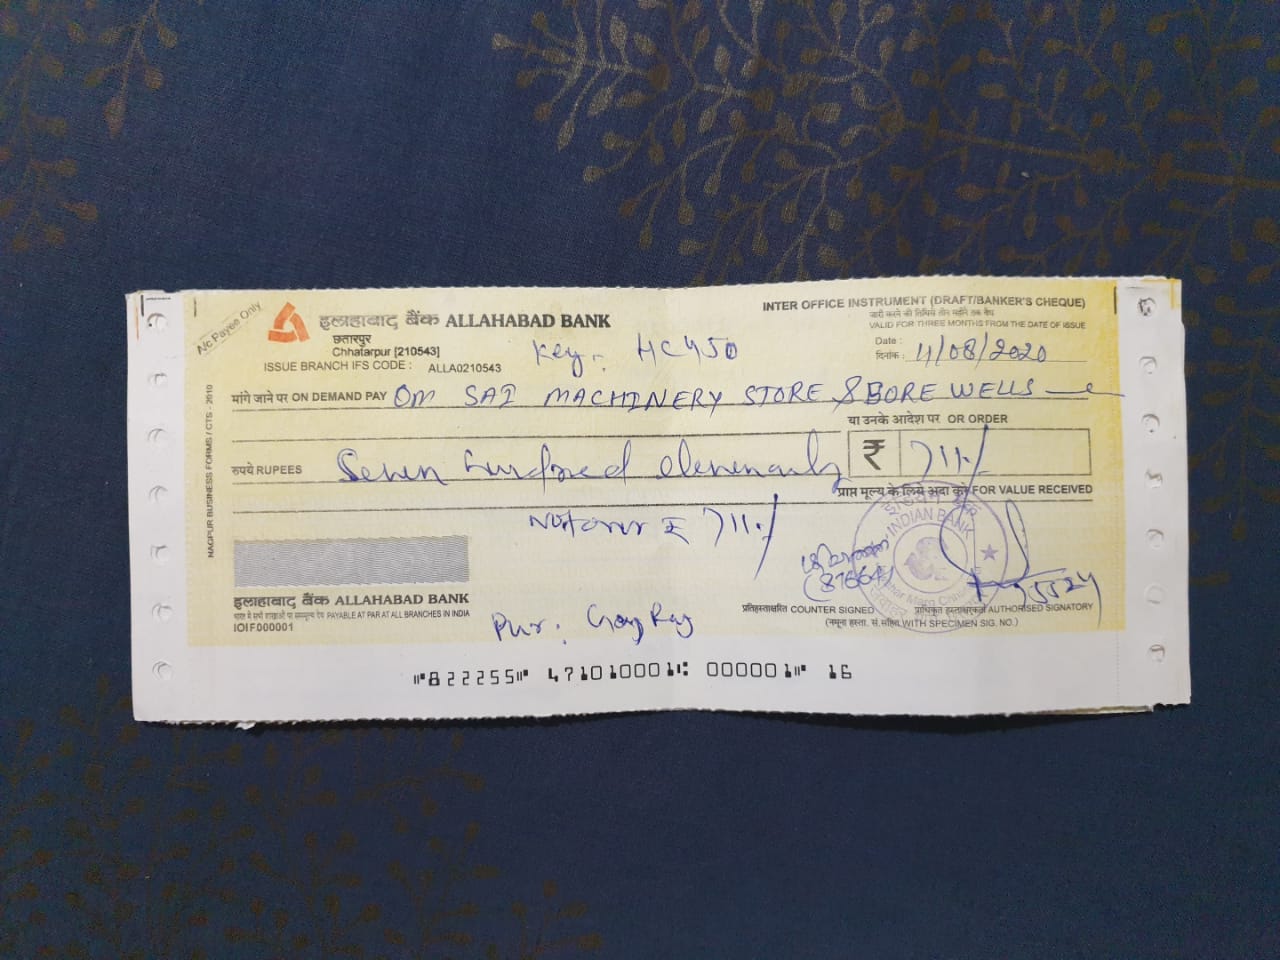 A/c Payee Only
इलाहाबाद बैंक ALLAHABAD BANK
छतारपुर
Chhatarpur [210543]
ISSUE BRANCH IFS CODE : ALLA0210543
Key. HC450
INTER OFFICE INSTRUMENT (DRAFT/BANKER'S CHEQUE)
जारी करने की तिथिसे तीन महीने तक वैध
VALID FOR THREE MONTHS FROM THE DATE OF ISSUE
Date :
दिनांक : 11/08/2020
मांगे जाने पर ON DEMAND PAY OM SAI MACHINERY STORE & BORE WELLS
या उनके आदेश पर OR ORDER
रुपये RUPEES Seven hundred eleven only
₹ 711/-
प्राप्त मूल्य के लिये अदा करें FOR VALUE RECEIVED
₹ 711/-
INDIAN BANK
(87664)
इलाहाबाद बैंक ALLAHABAD BANK
भारत में सभी शाखाओं पर सममूल्य देय PAYABLE AT PAR AT ALL BRANCHES IN INDIA
IOIF000001
प्रतिहस्ताक्षरित COUNTER SIGNED
प्राधिकृत हस्ताक्षरकर्ता AUTHORISED SIGNATORY
(नमूना हस्ता. सं.सहित WITH SPECIMEN SIG. NO.)
Pur:
NAGPUR BUSINESS FORMS / CTS - 2010
⑈822255⑈ 471010001⑆ 000001⑈ 16